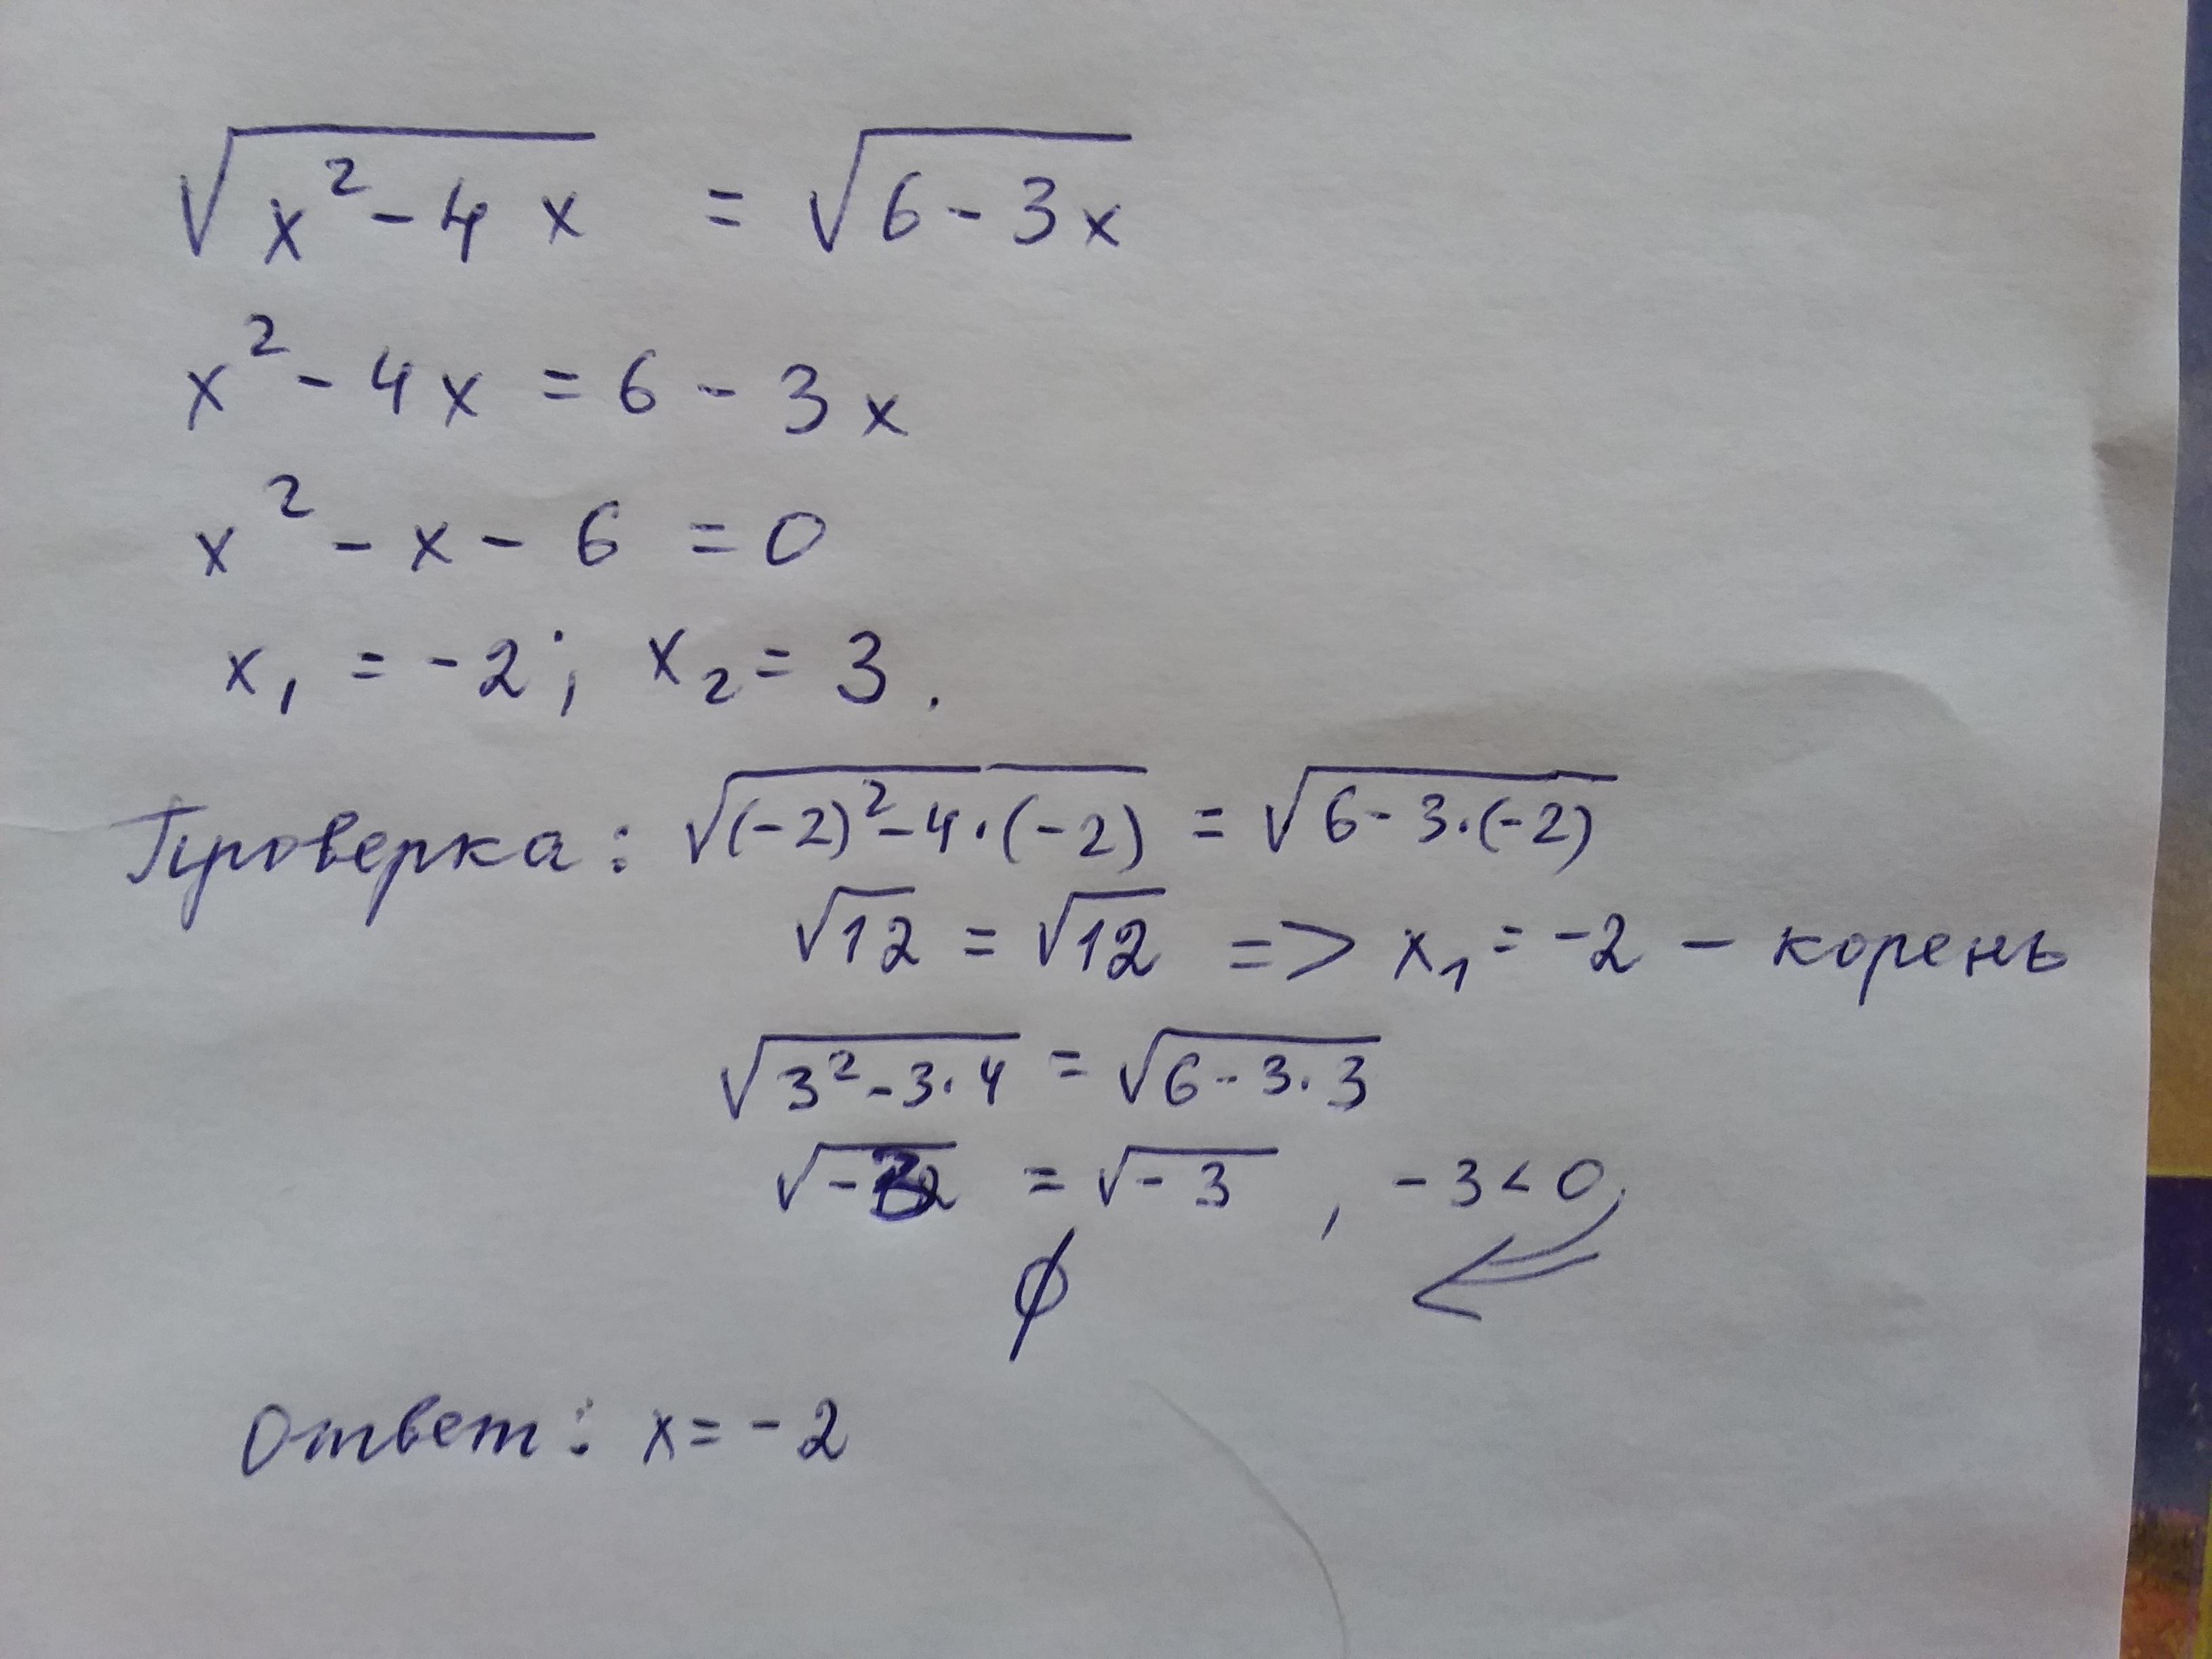 √(x² - 4x) = √(6 - 3x)
x² - 4x = 6 - 3x
x² - x - 6 = 0
x₁ = -2; x₂ = 3.
Проверка: √((-2)² - 4·(-2)) = √(6 - 3·(-2))
√12 = √12 => x₁ = -2 - корень
√(3² - 3·4) = √(6 - 3·3)
√-3 = √-3, -3 < 0
∅
Ответ: x = -2